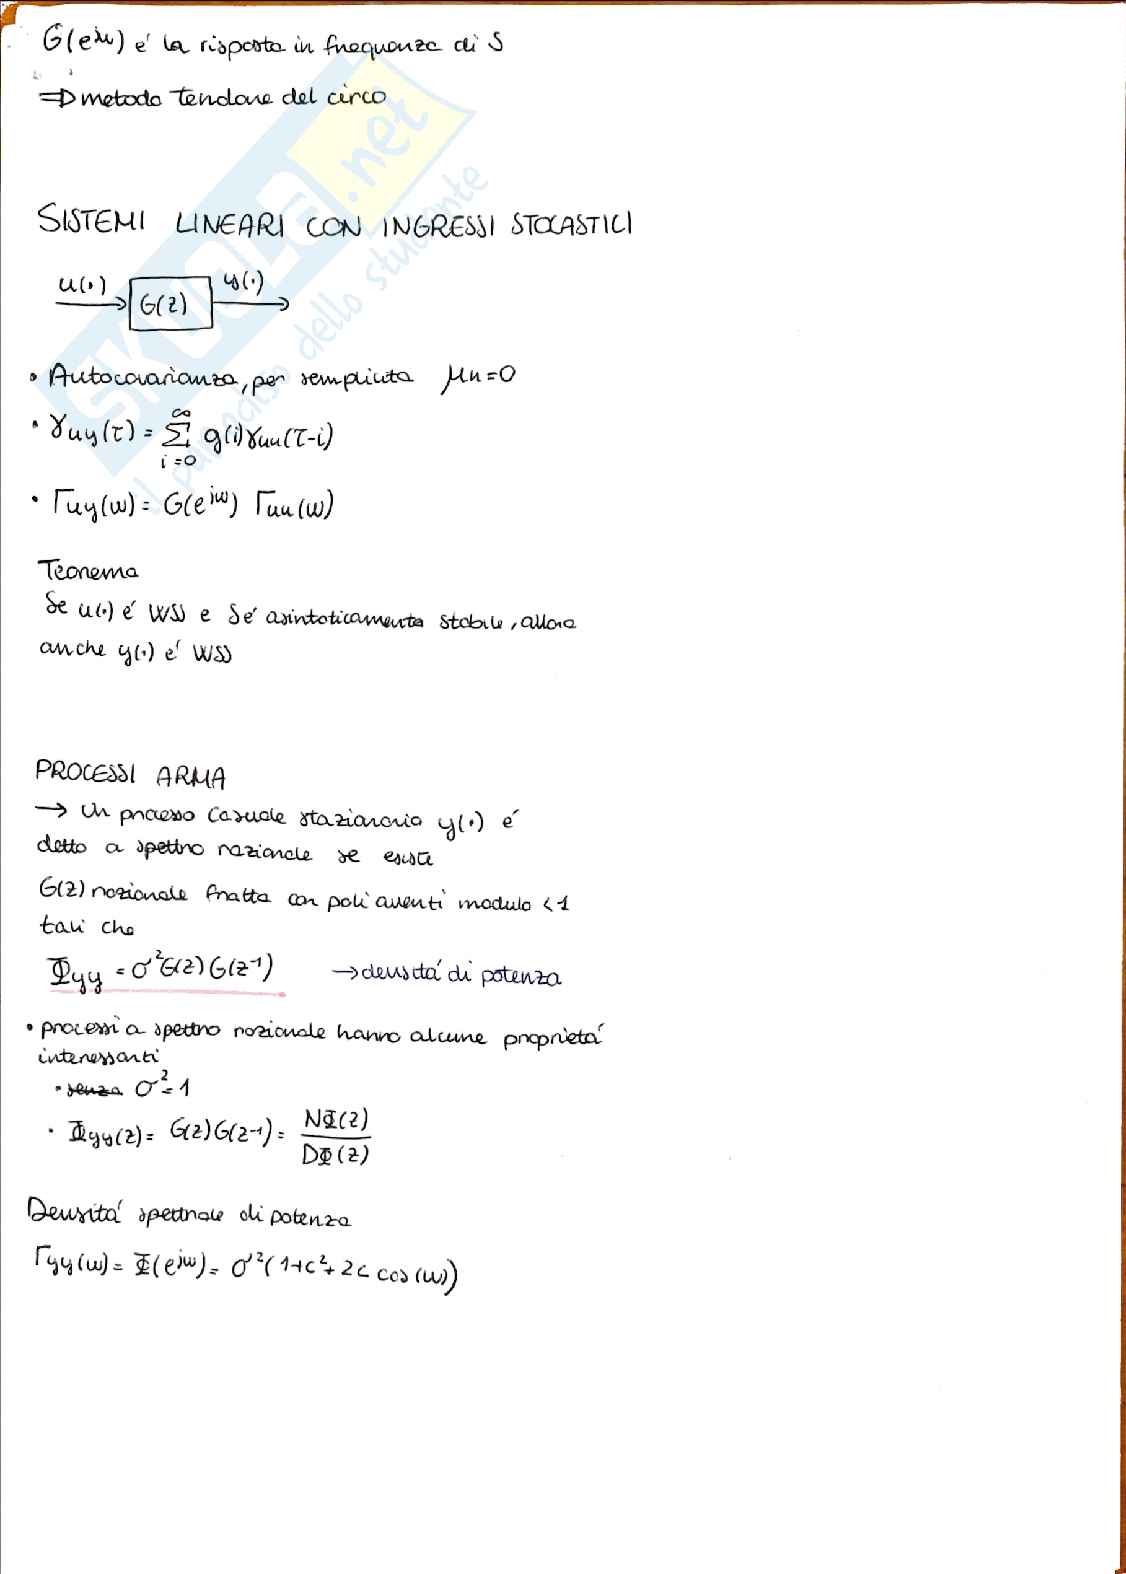 G(e^jω) é la risposta in frequenza di S
⇒ metodo tendone del circo
SISTEMI LINEARI CON INGRESSI STOCASTICI
u(·) G(z) y(·)
• Autocovarianza, per semplicita μu=0
• γuy(τ) = ∞Σi=0 g(i)γuu(τ-i)
• Γuy(ω) = G(e^jω) Γuu(ω)
Teorema
Se u(·) é WSS e S é asintoticamente stabile, allora
anche y(·) é WSS
PROCESSI ARMA
→ Un processo casuale stazionario y(·) é
detto a spettro razionale se esiste
G(z) razionale fratta con poli aventi modulo <1
tali che
Φyy = σ²G(z)G(z⁻¹) → densitá di potenza
• processi a spettro razionale hanno alcune proprietá
interessanti
• senza σ²=1
• Φyy(z) = G(z)G(z⁻¹) = NΦ(z) / DΦ(z)
Densitá spettrale di potenza
Γyy(ω) = Φ(e^jω) = σ²(1+c²+2c cos(ω))
SKUOLA.net
il paradiso dello studente